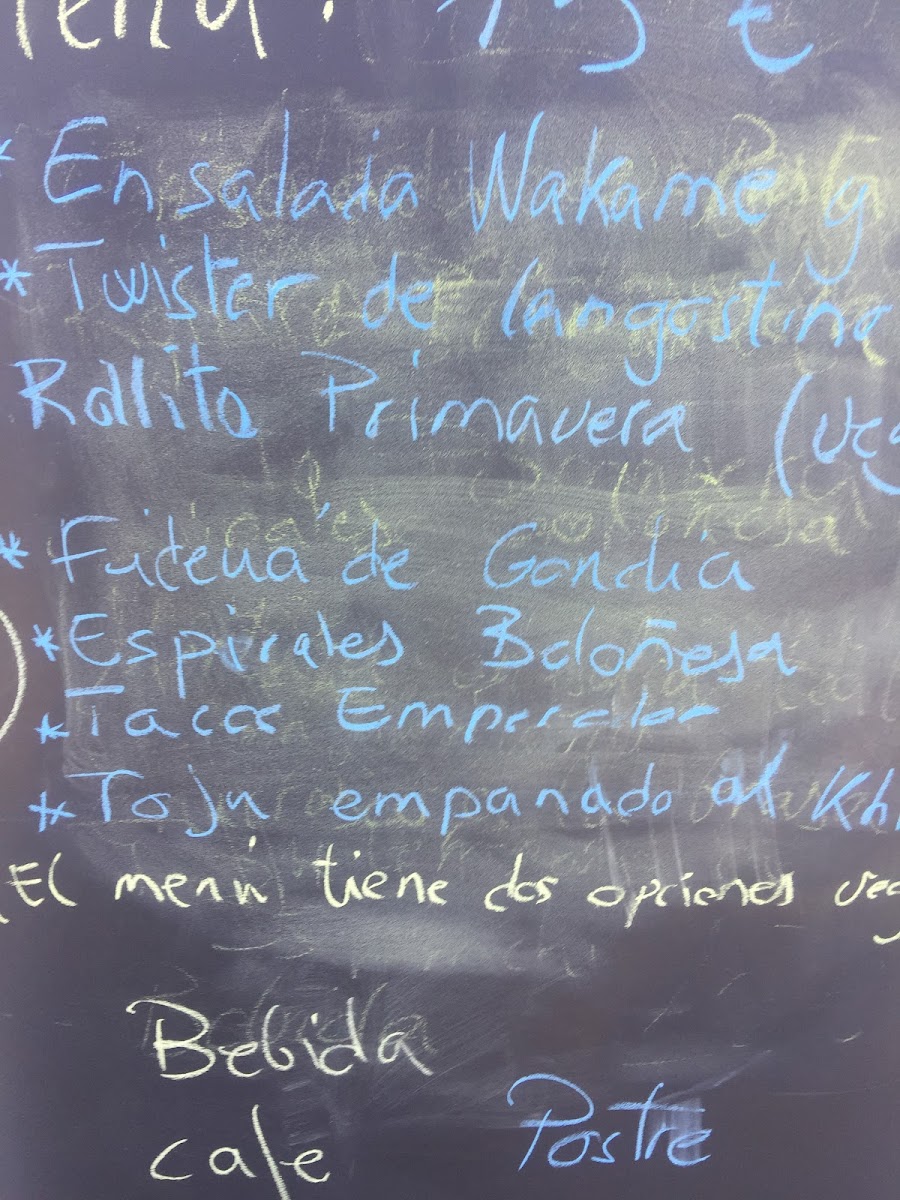 15 €
* Ensalada Wakame y
* Twister de langostino
Rollito Primavera (veg
* Fideuá de Gandia
* Espirales Boloñesa
* Tacos Emperador
* Tofu empanado al Kh
(El menú tiene dos opciones veg
Bebida
Postre
cafe